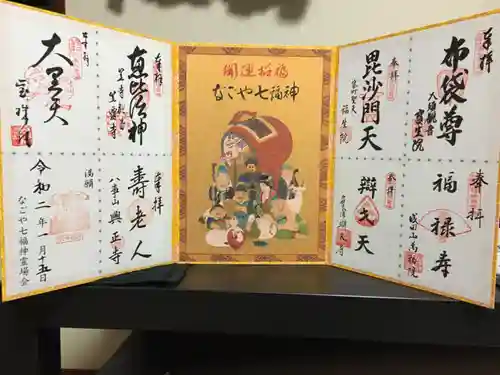 奉拝
布袋尊
大須観音
寶生院
奉拝
福禄寿
成田山
萬福院
奉拝
毘沙門天
笠寺聖天
福生院
奉拝
辯才天
開運招福
なごや七福神
奉拝
恵比須神
笠寺観音
笠覆寺
奉拝
寿老人
八事山
興正寺
満願
奉拝
大黒天
宝珠院
令和二年一月十五日
なごや七福神霊場会